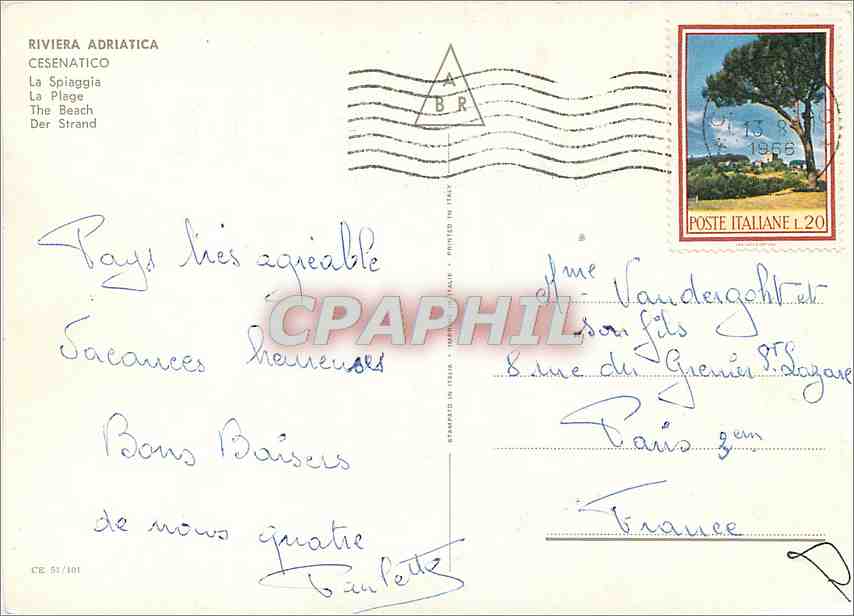 RIVIERA ADRIATICA
CESENATICO
La Spiaggia
La Plage
The Beach
Der Strand
A
B R
13 8
1966
POSTE ITALIANE L.20
Pays très agréable
Vacances heureuses
Bons Baisers
de nous quatre
Paulette
CE 51/101
STAMPATO IN ITALIA • IMPRIME EN ITALIE • PRINTED IN ITALY
CPAPHIL
Mme Vandergoht et
son fils
8 rue du Grenier St Lazare
Paris 3em
France